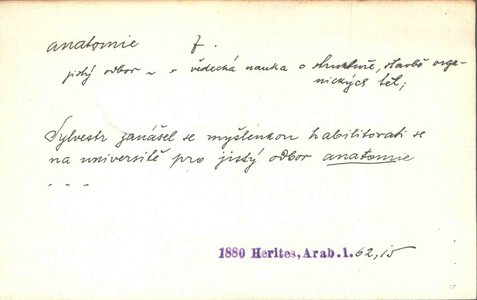 anatomie f.
jistý odbor ~ = vědecká nauka o struktuře, stavbě orga-
nických těl;
Sylvestr zanášel se myšlenkou habilitovati se
na universitě pro jistý odbor anatomie
- - -
1880 Herites, Arab. 1. 62, 15